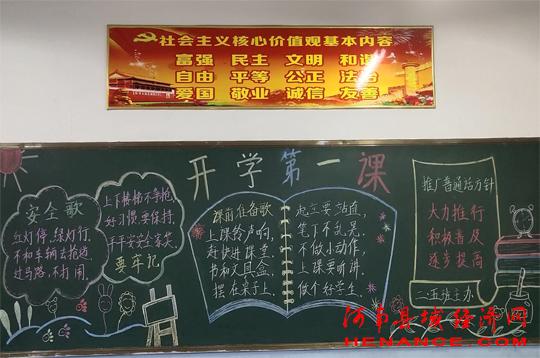 社会主义核心价值观基本内容
富强 民主 文明 和谐
自由 平等 公正 法治
爱国 敬业 诚信 友善
开学第一课
安全歌
红灯停,绿灯行,
不和车辆去抢道
过马路,不打闹,
上下楼梯不争抢,
好习惯要保持,
平平安安
要牢记
课前准备歌
上课铃声响,
赶快进课堂
书和文具盒,
摆在桌子上,
起立要站直,
笔丁不乱晃,
不做小动作,
上课要听讲,
做个好学生.
推广普通话方针
大力推行
积极普及
逐步提高
河南县域经济网
HENANCE.COM